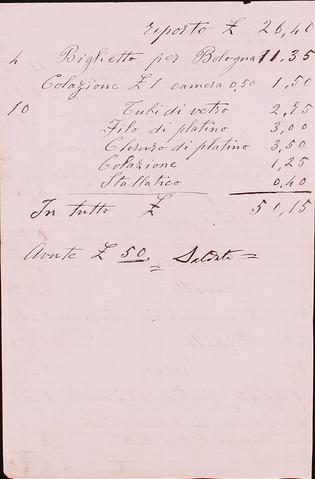 riporto £ 26,40
4 Biglietto per Bologna 11,35
Colazione £ 1 camera 0,50 1,50
10 Tubi di vetro 2,75
Filo di platino 3,00
Cloruro di platino 3,50
Colazione 1,25
Stallatico 0,40
In tutto £ 50,15
Avute £ 50. = Saldato =